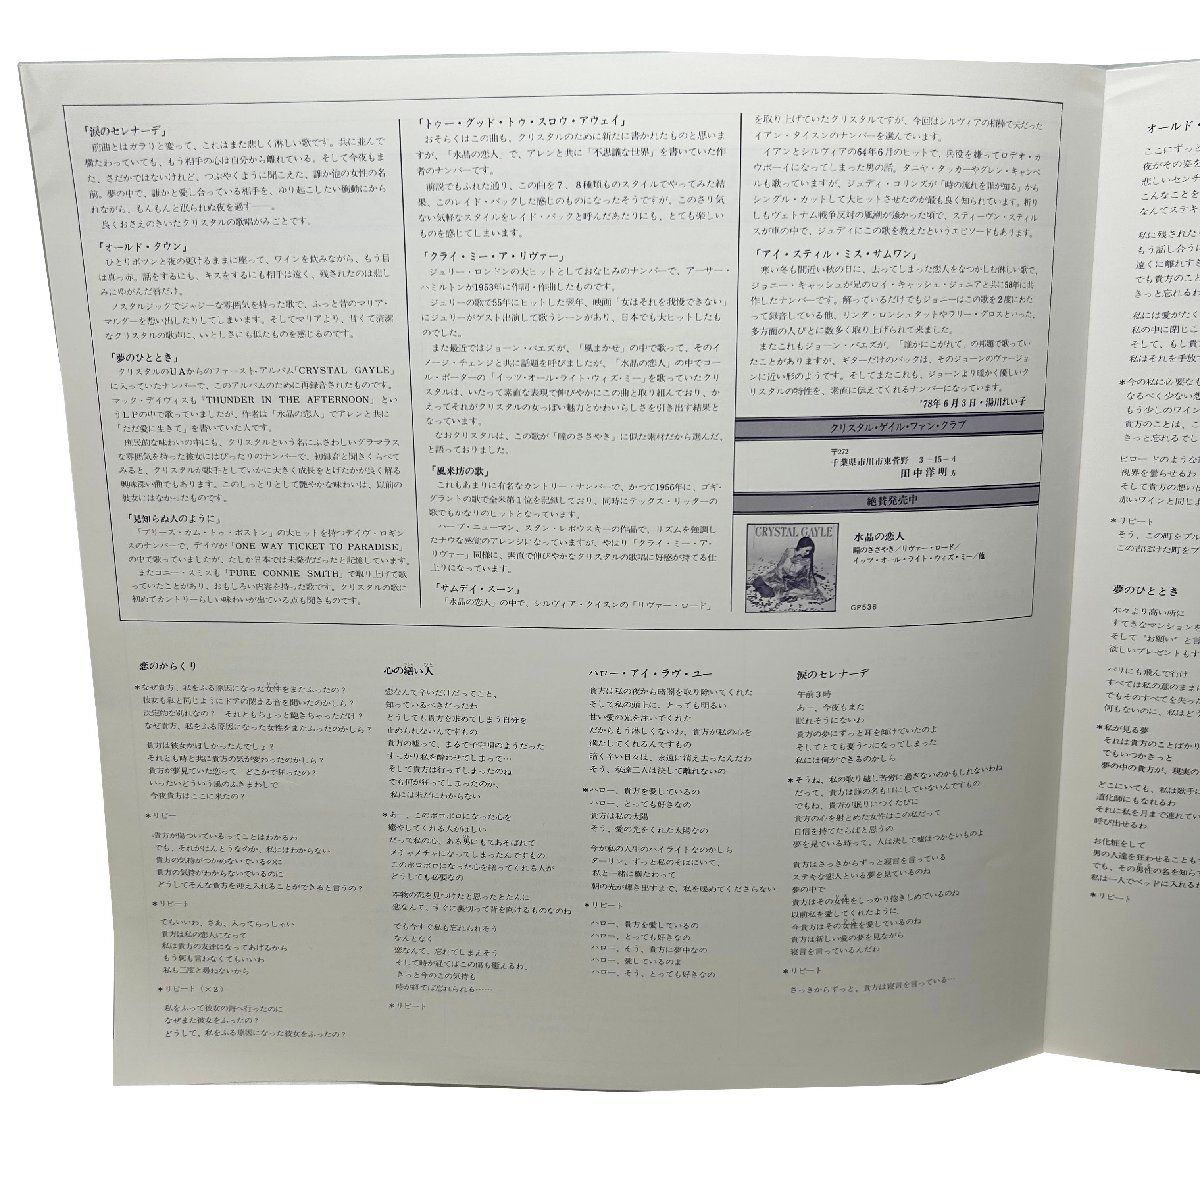 「涙のセレナーデ」
前曲とはガラリと変って、これはまた悲しく淋しい歌です。共に並んで
横たわっていても、もう相手の心は自分から離れている。そして今夜もま
た、さだかではないけれど、つぶやくように聞こえた、誰か他の女性の名
前。夢の中で、誰かと愛し合っている相手を、ゆり起こしたい衝動にから
れながら、もんもんと眠られぬ夜を過す――。
良くおさえのきいたクリスタルの歌唱がみごとです。
「オールド・タウン」
ひとりポツンと夜の更けるままに座って、ワインを飲みながら、もう目
は真っ赤。話をするにも、キスをするにも相手は遠く、残されたのは悲し
みにゆがんだ唇だけ。
ノスタルジックでジャジーな雰囲気を持った歌で、ふっと昔のマリア・
マルダーを想い出したりしてしまいます。そしてマリアより、甘くて清潔
なクリスタルの歌声に、いとしさにも似たものを感じるのです。
「夢のひととき」
クリスタルのUAからのファースト・アルバム「CRYSTAL GAYLE」
に入っていたナンバーで、このアルバムのために再録音されたものです。
マック・デイヴィスも「THUNDER IN THE AFTERNOON」とい
うLPの中で歌っていましたが、作者は「水晶の恋人」でアレンと共に
「ただ愛に生きて」を書いていた人です。
庶民的な味わいの中にも、クリスタルという名にふさわしいグラマラス
な雰囲気を持った彼女にはぴったりのナンバーで、初録音と聞きくらべて
みると、クリスタルが歌手としていかに大きく成長をとげたかが良く解る
興味深い曲でもあります。このしっとりとして艶やかな味わいは、以前の
彼女にはなかったものです。
「見知らぬ人のように」
「プリース・カム・トゥ・ボストン」の大ヒットを持つデイヴ・ロギン
スのナンバーで、デイヴが「ONE WAY TICKET TO PARADISE」
の中で歌っていましたが、たしか日本では未発売だったと記憶しています。
またコニー・スミスも「PURE CONNIE SMITH」で取り上げて歌
っていたことがあり、おもしろい内容を持った歌です。クリスタルの歌に
初めてカントリーらしい味わいが出ている点も聞きものです。
「トゥー・グッド・トゥ・スロウ・アウェイ」
おそらくはこの曲も、クリスタルのために新たに書かれたものと思いま
すが、「水晶の恋人」で、アレンと共に「不思議な世界」を書いていた作
者のナンバーです。
前説でもふれた通り、この曲を7、8種類ものスタイルでやってみた結
果、このレイド・バックした感じのものになったそうですが、このさり気
ない気軽なスタイルをレイド・バックと呼んだあたりにも、とても楽しい
ものを感じてしまいます。
「クライ・ミー・ア・リヴァー」
ジュリー・ロンドンの大ヒットとしておなじみのナンバーで、アーサー・
ハミルトンが1953年に作詞・作曲したものです。
ジュリーの歌で55年にヒットした翌年、映画「女はそれを我慢できない」
にジュリーがゲスト出演して歌うシーンがあり、日本でも大ヒットしたも
のでした。
また最近ではジョーン・バエズが、「風まかせ」の中で歌って、そのイ
メージ・チェンジと共に話題を呼びましたが、「水晶の恋人」の中でコー
ル・ポーターの「イッツ・オール・ライト・ウィズ・ミー」を歌っていたクリ
スタルは、いたって素直な表現で伸びやかにこの曲と取り組んており、か
えってそれがクリスタルの女っぽい魅力とかわいらしさを引き出す結果と
なっています。
なおクリスタルは、この歌が「瞳のささやき」に似た素材だから選んだ、
と語っておりました。
「風来坊の歌」
これもあまりに有名なカントリー・ナンバーで、かつて1956年に、ゴギ・
グラントの歌で全米第1位を記録しており、同時にテックス・リッターの
歌でもかなりのヒットとなっています。
ハーブ・ニューマン、スタン・レボウスキーの作品で、リズムを強調し
たナウな感覚のアレンジになっていますが、やはり「クライ・ミー・ア・
リヴァー」同様に、素直で伸びやかなクリスタルの歌唱に好感が持てる仕
上りになっています。
「サムデイ・スーン」
「水晶の恋人」の中で、シルヴィア・タイスンの「リヴァー・ロード」
を取り上げていたクリスタルですが、今回はシルヴィアの相棒で夫だった
イアン・タイスンのナンバーを選んでいます。
イアンとシルヴィアの64年6月のヒットで、兵役を嫌ってロデオ・カ
ウボーイになってしまった男の話。タニヤ・タッカーやグレン・キャンベ
ルも歌っていますが、ジュディ・コリンズが「時の流れを誰が知る」から
シングル・カットして大ヒットさせたのが最も良く知られています。折り
しもヴェトナム戦争反対の風潮が強かった頃で、スティーヴン・スティル
スが車の中で、ジュディにこの歌を教えたというエピソードもあります。
「アイ・スティル・ミス・サムワン」
寒い冬も間近い秋の日に、去ってしまった恋人をなつかしむ淋しい歌で、
ジョニー・キャッシュが兄のロイ・キャッシュ・ジュニアと共に58年に共
作したナンバーです。解っているだけでもジョニーはこの歌を2度にわた
って録音している他、リンダ・ロンシュタットやフラリー・グロスといった、
多方面の人びとに数多く取り上げられて来ました。
またこれもジョーン・バエズが、「誰かにこがれて」の邦題で歌ってい
たことがありますが、ギターだけのバックは、そのジョーンのヴァージョ
ンに近い形のようです。そしてまたこれも、ジョーンより暖かく優しいク
リスタルの特性を、素直に伝えてくれるナンバーになっています。
'78年6月3日・湯川れい子
クリスタル・ゲイル・ファン・クラブ
〒272
千葉県市川市東菅野 3-15-4
田中洋明方
絶賛発売中
CRYSTAL GAYLE
水晶の恋人
瞳のささやき／リヴァー・ロード／
イッツ・オール・ライト・ウィズ・ミー／他
GP536
恋のからくり
*なぜ貴方、私をふる原因になった女性をまたふったの？
彼女も私と同じようにドアの閉まる音を聞いたのかしら？
決定的な別れなの？ それともちょっと飽きちゃっただけ？
なぜ貴方、私をふる原因になった女性をまたふったのかしら？
貴方は彼女がほしかったんでしょ？
それとも時と共に貴方の気が変わったのかしら？
貴方が夢見ていた恋って どこかで狂ったの？
いったいどういう風のふきまわしで
今夜貴方はここに来たの？
*リピート
貴方が傷ついているってことはわかるわ
でも、それがほんとうなのか、私にはわからない
貴方の気持がつかめないでいるのに
貴方の気持がわからないでいるのに
どうしてそんな貴方を迎え入れることができると言うの？
*リピート
でもいいわ、さあ、入ってらっしゃい
貴方は私の恋人になって
私は貴方の友達になってあげるから
もう何も言わなくてもいいわ
私も二度と尋ねないから
*リピート（×2）
私をふって彼女の所へ行ったのに
なぜまた彼女をふったの？
どうして、私をふる原因になった彼女をふったの？
心の繕い人
恋なんて辛いだけだってこと、
知っているべきだったわ
どうしても貴方を求めてしまう自分を
止められないんですもの
貴方の嘘って、まるで子守唄のようだった
すっかり私を酔わせてしまって…
そして貴方は行ってしまったのね
でも何が行ってしまったのか、
私には未だにわからない
*あゝ、このボロボロになった心を
癒やしてくれる人がほしい
だって私の心、ある男にもてあそばれて
メチャメチャになってしまったんですもの
このボロボロになった心を繕ってくれる人が
どうしても必要なの
本物の恋を見つけたと思ったとたんに
恋なんて、すぐに裏切って背を向けるものなのね
でも今すぐ私も忘れられそう
なんとなく
恋なんて、忘れてしまえそう
そして時が経てばこの傷も癒えるわ、
きっと今のこの気持も
時が経てば忘れられる……
*リピート
ハロー・アイ・ラヴ・ユー
貴方は私の夜から暗闇を取り除いてくれた
そして私の頭上に、とっても明るい
甘い愛の光を注いでくれた
だからもう淋しくないわ、貴方が私の心を
満たしてくれるんですもの
暗く辛い日々は、永遠に消えまったんだわ
そう、私達二人は決して離れないの
*ハロー、貴方を愛しているの
ハロー、とっても好きなの
貴方は私の太陽
そう、愛の光をくれた太陽なの
今が私の人生のハイライトなのかしら
ダーリン、ずっと私のそばにいて、
私と一緒に横たわって
朝の光が輝き出すまで、私を暖めてくださらない
*リピート
ハロー、貴方を愛しているの
ハロー、とっても好きなの
ハロー、そう、貴方に夢中なの
ハロー、愛しているのよ
ハロー、そう、とっても好きなの
涙のセレナーデ
午前3時
あゝ、今夜もまた
眠れそうにないわ
貴方の夢にずっと耳を傾けていたのよ
そしてとても憂うつになってしまった
私には何ができるのかしら
*そうね、私の取り越し苦労に過ぎないのかもしれないわね
だって、貴方は誰の名も口にしていないんですもの
でもね、貴方が眠りにつくたびに
貴方の心を射とめた女性はこの私だって
自信を持てたらばと思うの
夢を見ている時って、人は決して嘘はつかないものよ
貴方はさっきからずっと寝言を言っている
ステキな恋人といる夢を見ているのね
夢の中で
貴方はその女性をしっかり抱きしめているのね
以前私を愛してくれたように
今貴方はその女性を愛しているのね
貴方は新しい愛の夢を見ながら
寝言を言っているんだわ
*リピート
さっきからずっと、貴方は寝言を言っている…
オールド・
ここにずっと
夜がその姿を
悲しいセンチ
こんなことを
なんてステキ
私に残された
もう話し合う
遠くに離れすぎ
でも貴方のこと
きっと忘れるわ
私には愛がたく
私の中に閉じこ
そして、もし貴
私はそれを手放
*今の私に必要なも
なるべく少ない想
もう少しのワイン
貴方のことは、こ
きっと忘れるでし
ピロードのような
視界を曇らせるわ
そして貴方の想い出
赤いワインと同じよ
*リピート
そう、この町をブル
この古ぼけた町をブ
夢のひととき
木々より高い所に
すてきなマンションを
そして"お願い"と言
欲しいプレゼントもす
パリにも飛んで行け
すべては私の意のまま
でもそのすべてを失った
何もないのに、私はどう
*私が見る夢
それは貴方のことばかり
でもいつかきっと
夢の中の貴方が、現実の
どこにいても、私は歌手に
道化師にもなれるわ
それに私を月まで連れてい
呼び出せるわ
お化粧をして
男の人達を狂わせることも
でも、その男性の名を知ら
私は一人でベッドに入れるわ
*リピート